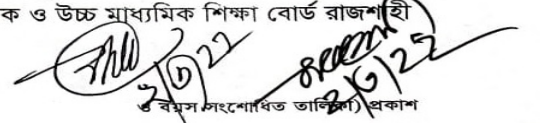 ক ও উচ্চ মাধ্যমিক শিক্ষা বোর্ড রাজশাহী
২/৩/২২
২/৩/২২
ও বয়স সংশোধিত তালিকা) প্রকাশ